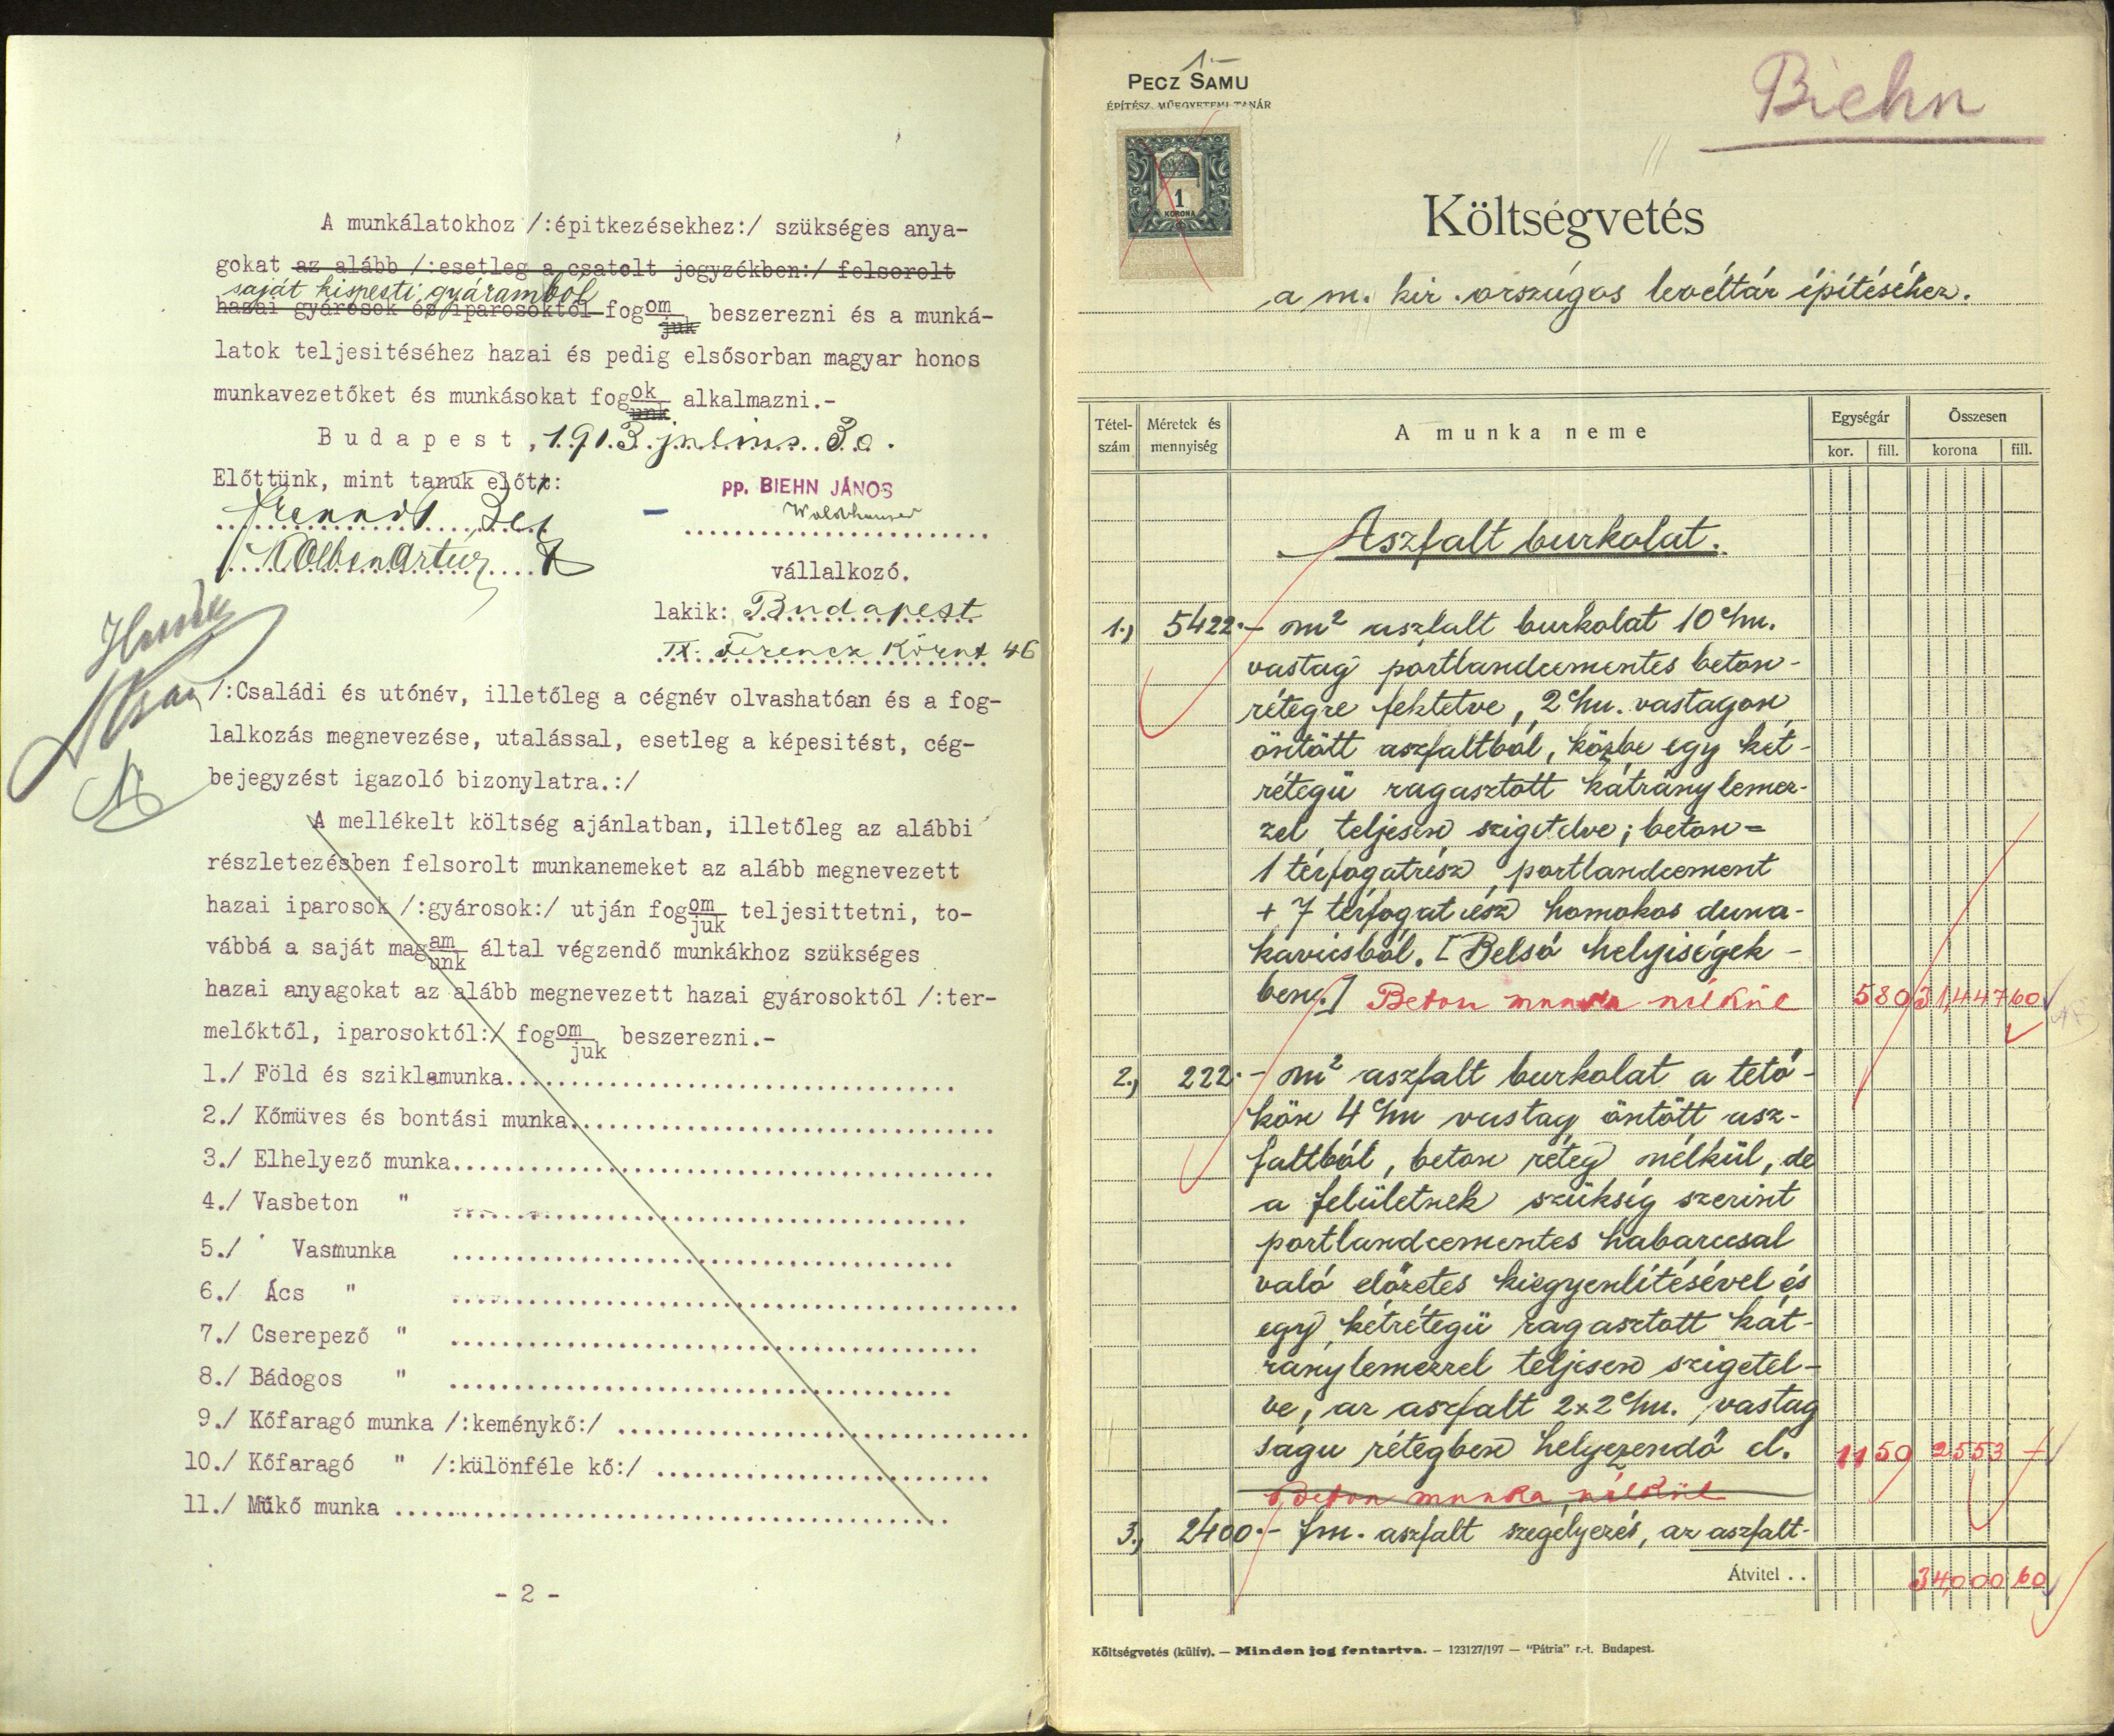 A munkálatokhoz /:épitkezésekhez:/ szükséges anya-
gokat az alább /:esetleg a csatolt jegyzékben:/ felsorolt
saját kispesti gyáramból
hazai gyárosok és iparosoktól fogom beszerezni és a munká-
juk
latok teljesitéséhez hazai és pedig elsősorban magyar honos
munkavezetőket és munkásokat fogok alkalmazni.-
unk
Budapest, 1913. julius 30.
Előttünk, mint tanuk előtt:
pp. BIEHN JÁNOS
vállalkozó.
lakik: Budapest
IX. Ferencz Körut 46
/:Családi és utónév, illetőleg a cégnév olvashatóan és a fog-
lalkozás megnevezése, utalással, esetleg a képesitést, cég-
bejegyzést igazoló bizonylatra.:/
A mellékelt költség ajánlatban, illetőleg az alábbi
részletezésben felsorolt munkanemeket az alább megnevezett
hazai iparosok /:gyárosok:/ utján fogom teljesittetni, to-
juk
vábbá a saját magam által végzendő munkákhoz szükséges
unk
hazai anyagokat az alább megnevezett hazai gyárosoktól /:ter-
melőktől, iparosoktól:/ fogom beszerezni.-
juk
1./ Föld és sziklamunka
2./ Kőmüves és bontási munka
3./ Elhelyező munka
4./ Vasbeton "
5./ Vasmunka
6./ Ács "
7./ Cserepező "
8./ Bádogos "
9./ Kőfaragó munka /:keménykő:/
10./ Kőfaragó " /:különféle kő:/
11./ Műkő munka
- 2 -
1.-
PECZ SAMU
ÉPÍTÉSZ, MŰEGYETEMI TANÁR
Biehn
1
KORONA
Költségvetés
a m. kir. országos levéltár építéséhez.
Tétel-szám Méretek és mennyiség A munka neme Egységár Összesen
kor. fill. korona fill.
Aszfalt burkolat.
1.) 5422.- m² aszfalt burkolat 10 c/m.
vastag portlandcementes beton-
rétegre fektetve, 2 c/m. vastagon
öntött aszfaltból, közbe egy két-
rétegű ragasztott kátránylemez-
zel teljesen szigetelve; beton=
1 térfogatrész portlandcement
+ 7 térfogatrész homokos duna-
kavicsból. [Belső helyiségek-
ben.] Beton munka nélkül 5 80 31,447 60
2.) 222.- m² aszfalt burkolat a tető-
kön 4 c/m vastag öntött asz-
faltból, beton réteg nélkül, de
a felületnek szükség szerint
portlandcementes habarcsal
való előzetes kiegyenlítésével és
egy kétrétegű ragasztott kát-
ránylemezzel teljesen szigetel-
ve, az aszfalt 2x2 c/m. vastag
ságu rétegben helyezendő el. 11 50 2553 -
Beton munka nélkül
3.) 2400.- fm. aszfalt szegélyezés, az aszfalt-
Átvitel . . 34,000 60
Költségvetés (külív). — Minden jog fentartva. — 123127/197 — "Pátria" r.-t. Budapest.